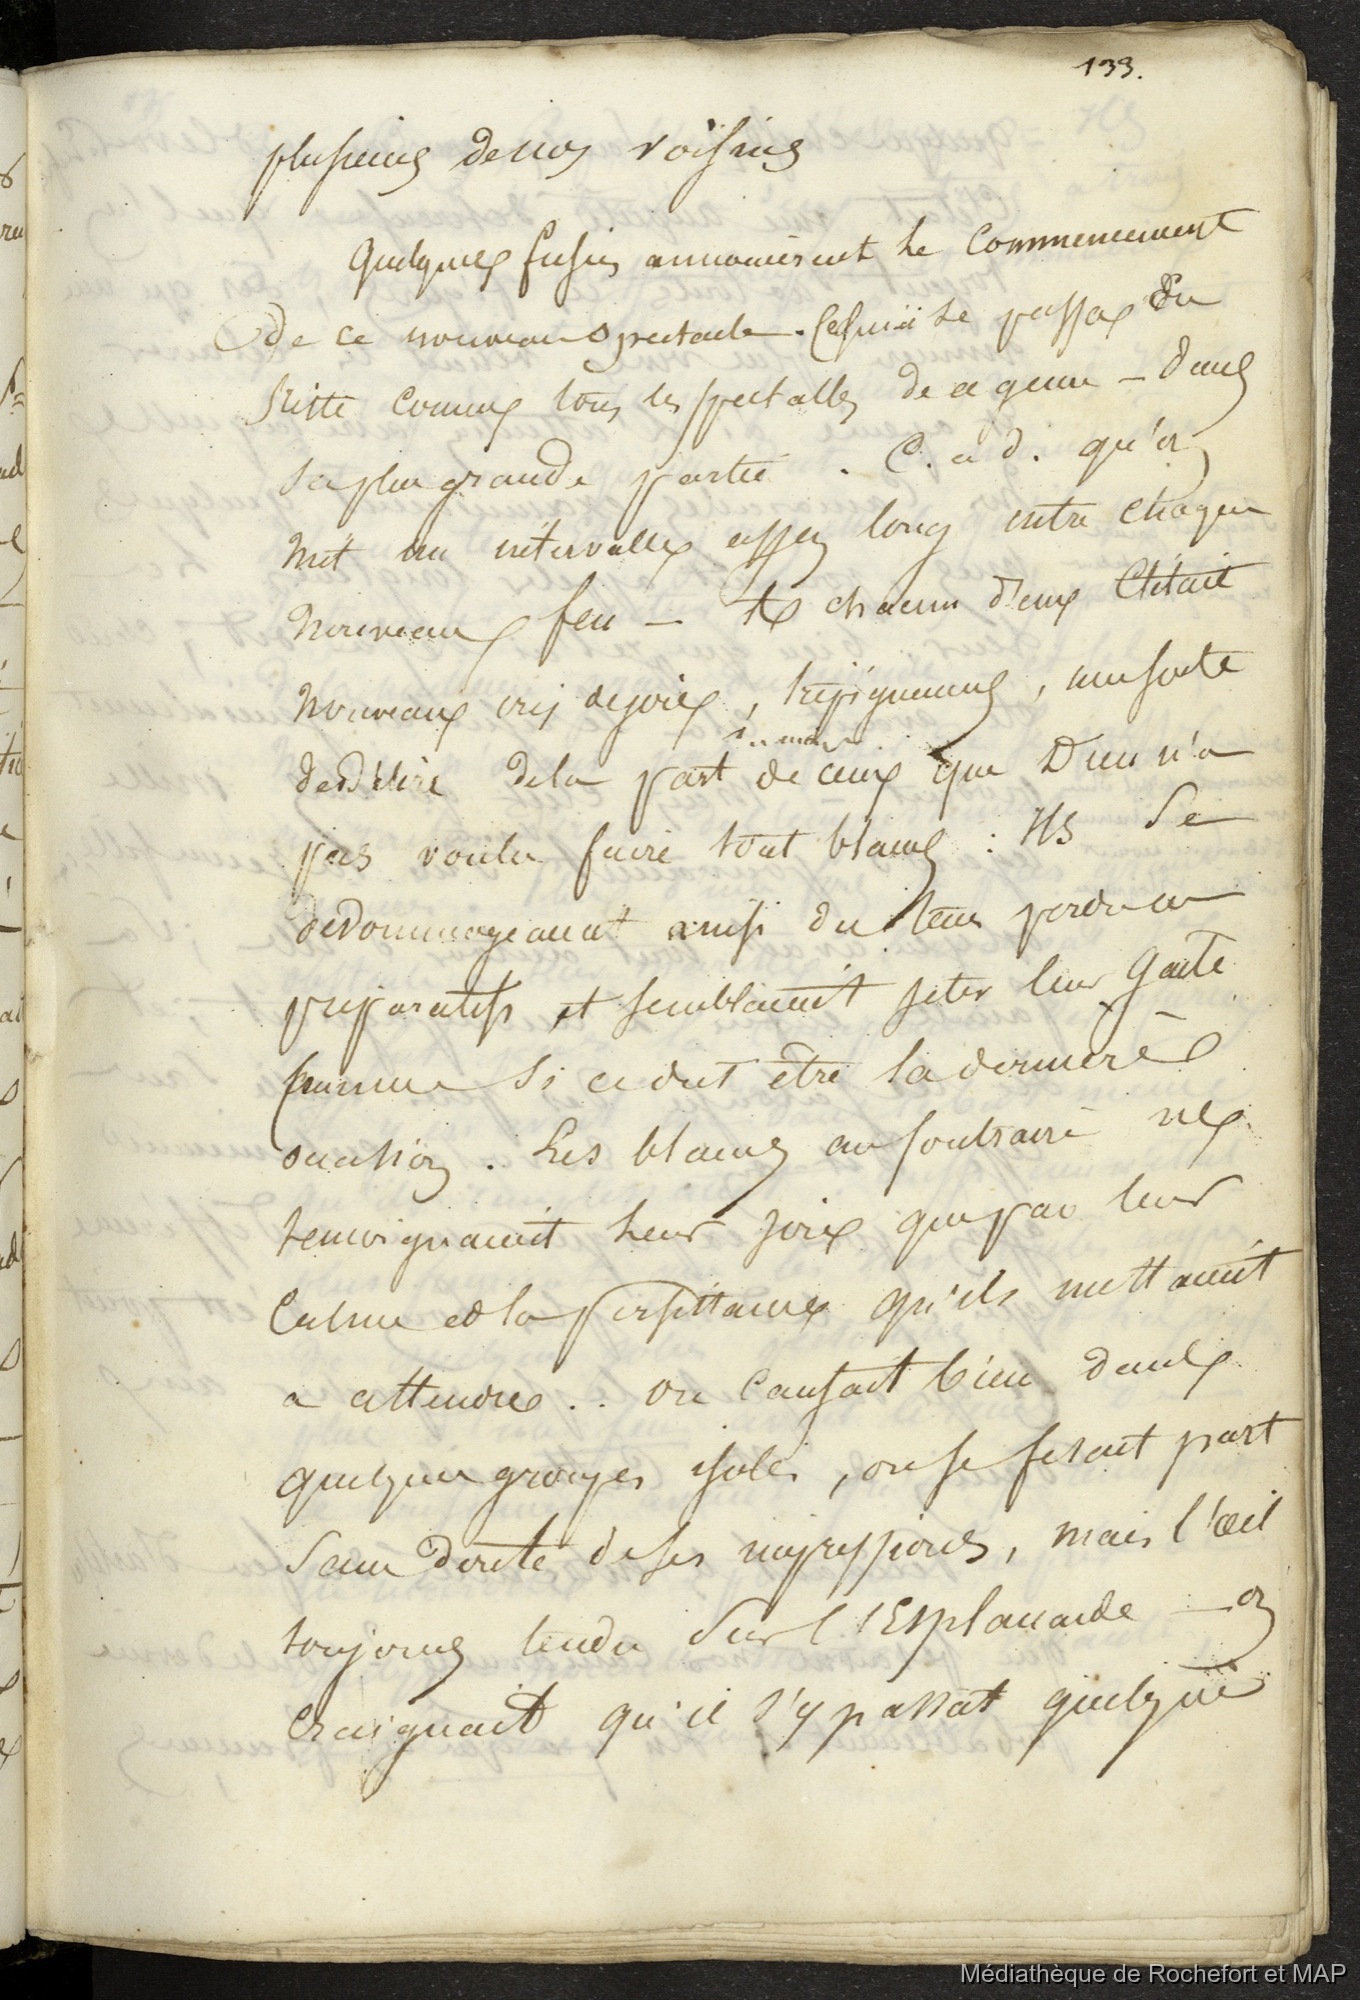 133.
plusieurs de nos voisins
Quelques fusées annoncèrent le commencement
de ce nouveau spectacle. Celui ci se passa du
reste comme tous les spectacles de ce genre – dans
sa plus grande partie. C. a d. qu'on
mit un intervalle assez long entre chaque
nouveau feu – A chacun d'eux C'était
nouveaux cris de joie, trépignements, une sorte
de délire de la part de ceux que Dieu n'a
pas voulu faire tout blancs : Ils se
dedommageaient ainsi du tems perdu en
préparatifs et semblaient jeter leur gaité
comme si ce dut être la dernière
occasion. Les blancs au contraire ne
temoignaient leur joie que par leur
calme et la persistance qu'ils mettaient
a attendre .. on causait bien dans
quelques groupes isolés, on se fesait part
sans doute de ses impressions, mais l'œil
toujours tendu sur l'Esplanade – on
craignait qu'il s'y passat quelque
Médiathèque de Rochefort et MAP